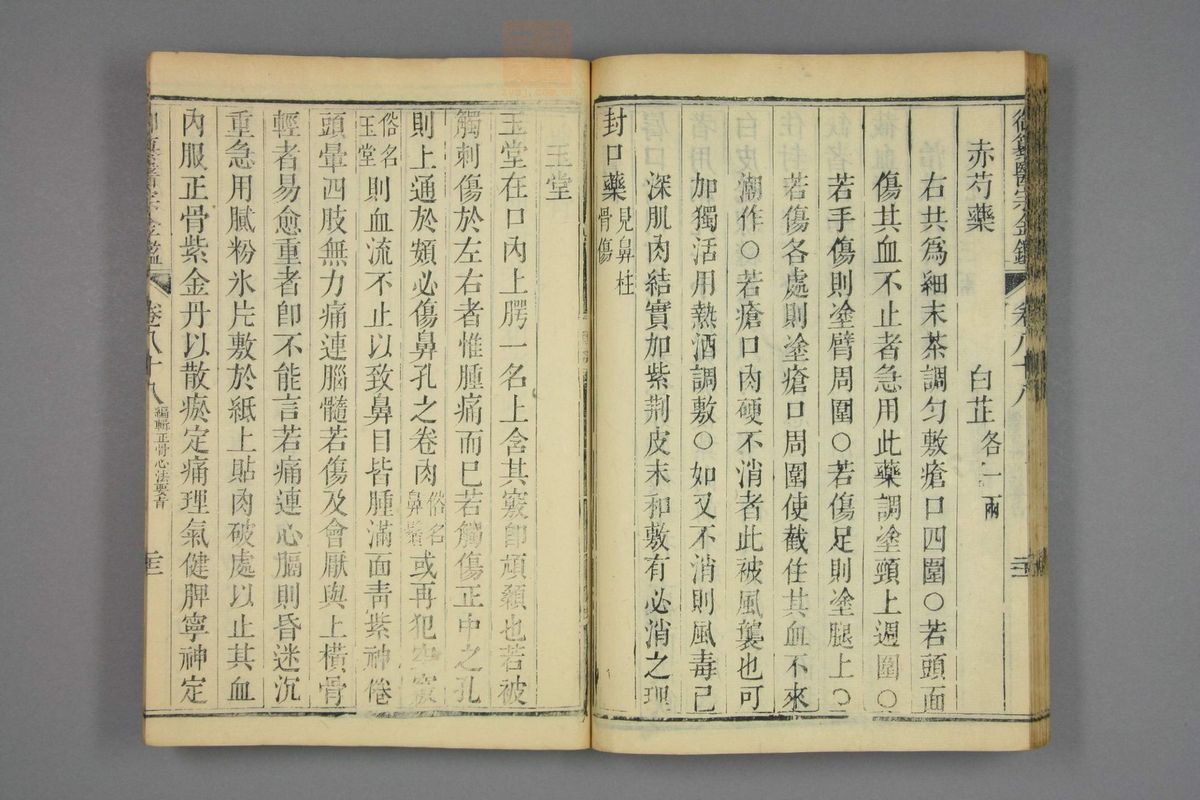 御纂醫宗金鑑 卷八十八
赤芍藥 白芷各一兩
右共爲細末茶調勻敷瘡口四圍○若頭面
傷其血不止者急用此藥調塗頸上週圍○
若手傷則塗臂周圍○若傷足則塗腿上○
若傷各處則塗瘡口周圍使截住其血不來
潮作○若瘡口肉硬不消者此被風襲也可
加獨活用熱酒調敷○如又不消則風毒已
深肌肉結實加紫荆皮末和敷有必消之理
封口藥見鼻柱骨傷
玉堂
玉堂在口內上腭一名上含其竅卽頏顙也若被
觸刺傷於左右者惟腫痛而已若觸傷正中之孔
則上通於頞必傷鼻孔之卷肉俗名鼻鬚或再犯空竅
俗名玉堂則血流不止以致鼻目皆腫滿面靑紫神倦
頭暈四肢無力痛連腦髓若傷及會厭與上橫骨
輕者易愈重者卽不能言若痛連心膈則昏迷沉
重急用膩粉氷片敷於紙上貼肉破處以止其血
內服正骨紫金丹以散瘀定痛理氣健脾寧神定
醫宗金鑑 卷八十八 編輯正骨心法要旨